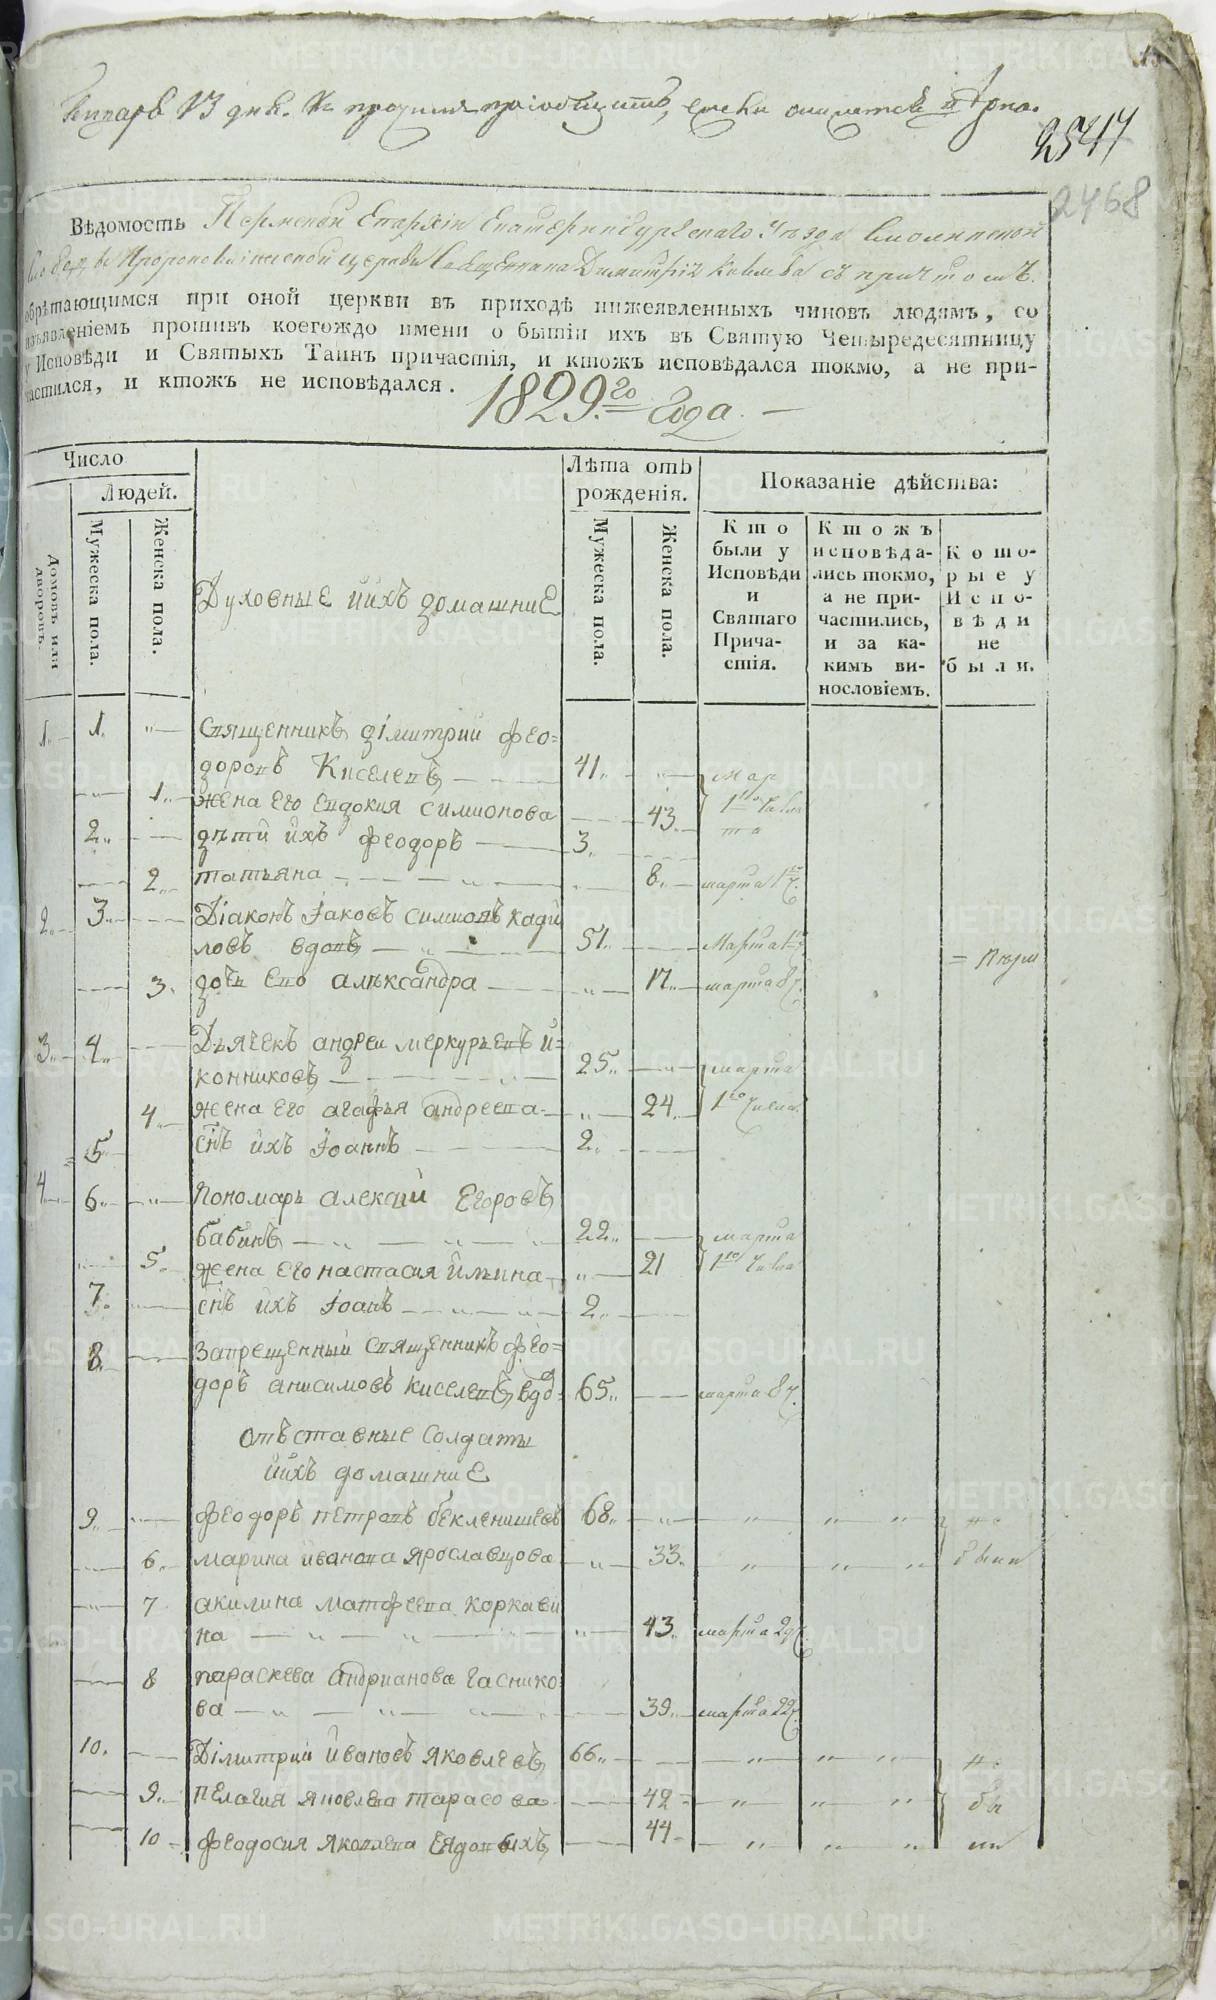 2517
2468
Вѣдомость Пермской Епархіи Екатеринбургскаго Уѣзда Смолинской
Слободы Пророкоилiинской церкви Священника Димитрія Киселева съ причтомъ.
обрѣтающимся при оной церкви въ приходѣ нижеявленныхъ чиновъ людямъ, со
изъявленіемъ противъ коегождо имени о бытіи ихъ въ Святую Четыредесятницу
у Исповѣди и Святыхъ Таинъ причастія, и ктожъ исповѣдался токмо, а не при-
частился, и ктожъ не исповѣдался.
1829.го года.
Число
Людей.
Домовъ или дворовъ.
Мужеска пола.
Женска пола.
Духовные ийхъ домашние
Лѣта отъ рожденія.
Мужеска пола.
Женска пола.
Показаніе дѣйства:
Кто были у Исповѣди и Святаго Прича-стія.
Ктожъ исповѣда-лись токмо, а не при-частились, и за ка-кимъ ви-нословіемъ.
Кото-рые у Испо-вѣди не были.
1. 1. священникъ дімитрий фео=
доровъ Киселевъ 41. мар
1. жена его евдокия симионова 43. 1го числа
2. дѣти ихъ феодоръ 3.
2. татьяна 8. марта 1го ч.
2. 3. Діаконъ Іаковъ симионъ кади
ловъ вдовъ 51. марта 1го ч.
3. дочь его алѣксандра 17. марта 8 ч.
3. 4. Дьячекъ андреи меркурьевъ и=
конниковъ 25. марта
4. жена его агафья андреева 24. 1го числа
5. сн҃ъ ихъ Іоаннъ 2.
4. 6. Пономарь алексий Егоровъ
бабинъ 22. марта
5. жена его настасия ильина 21 1го числа
7. сн҃ъ ихъ Іоанъ 2.
8. запрещенный священникъ фео=
доръ анисимовъ киселевъ, вдо 65. марта 8 ч.
отъставные солдаты
ийхъ домашние
9. феодоръ петровъ бекленищевъ 68. не
6. марина иванова ярославцова 33. были
7 акилина матфеева коркави
на 43. марта 29 ч.
8 параскева андрианова гаснико
ва 39. марта 22 ч.
10. Дімитрий ивановъ яковлевъ 66. не
9. пелагия яковлева тарасова 42 бы
10 феодосия яковлева 44 ли